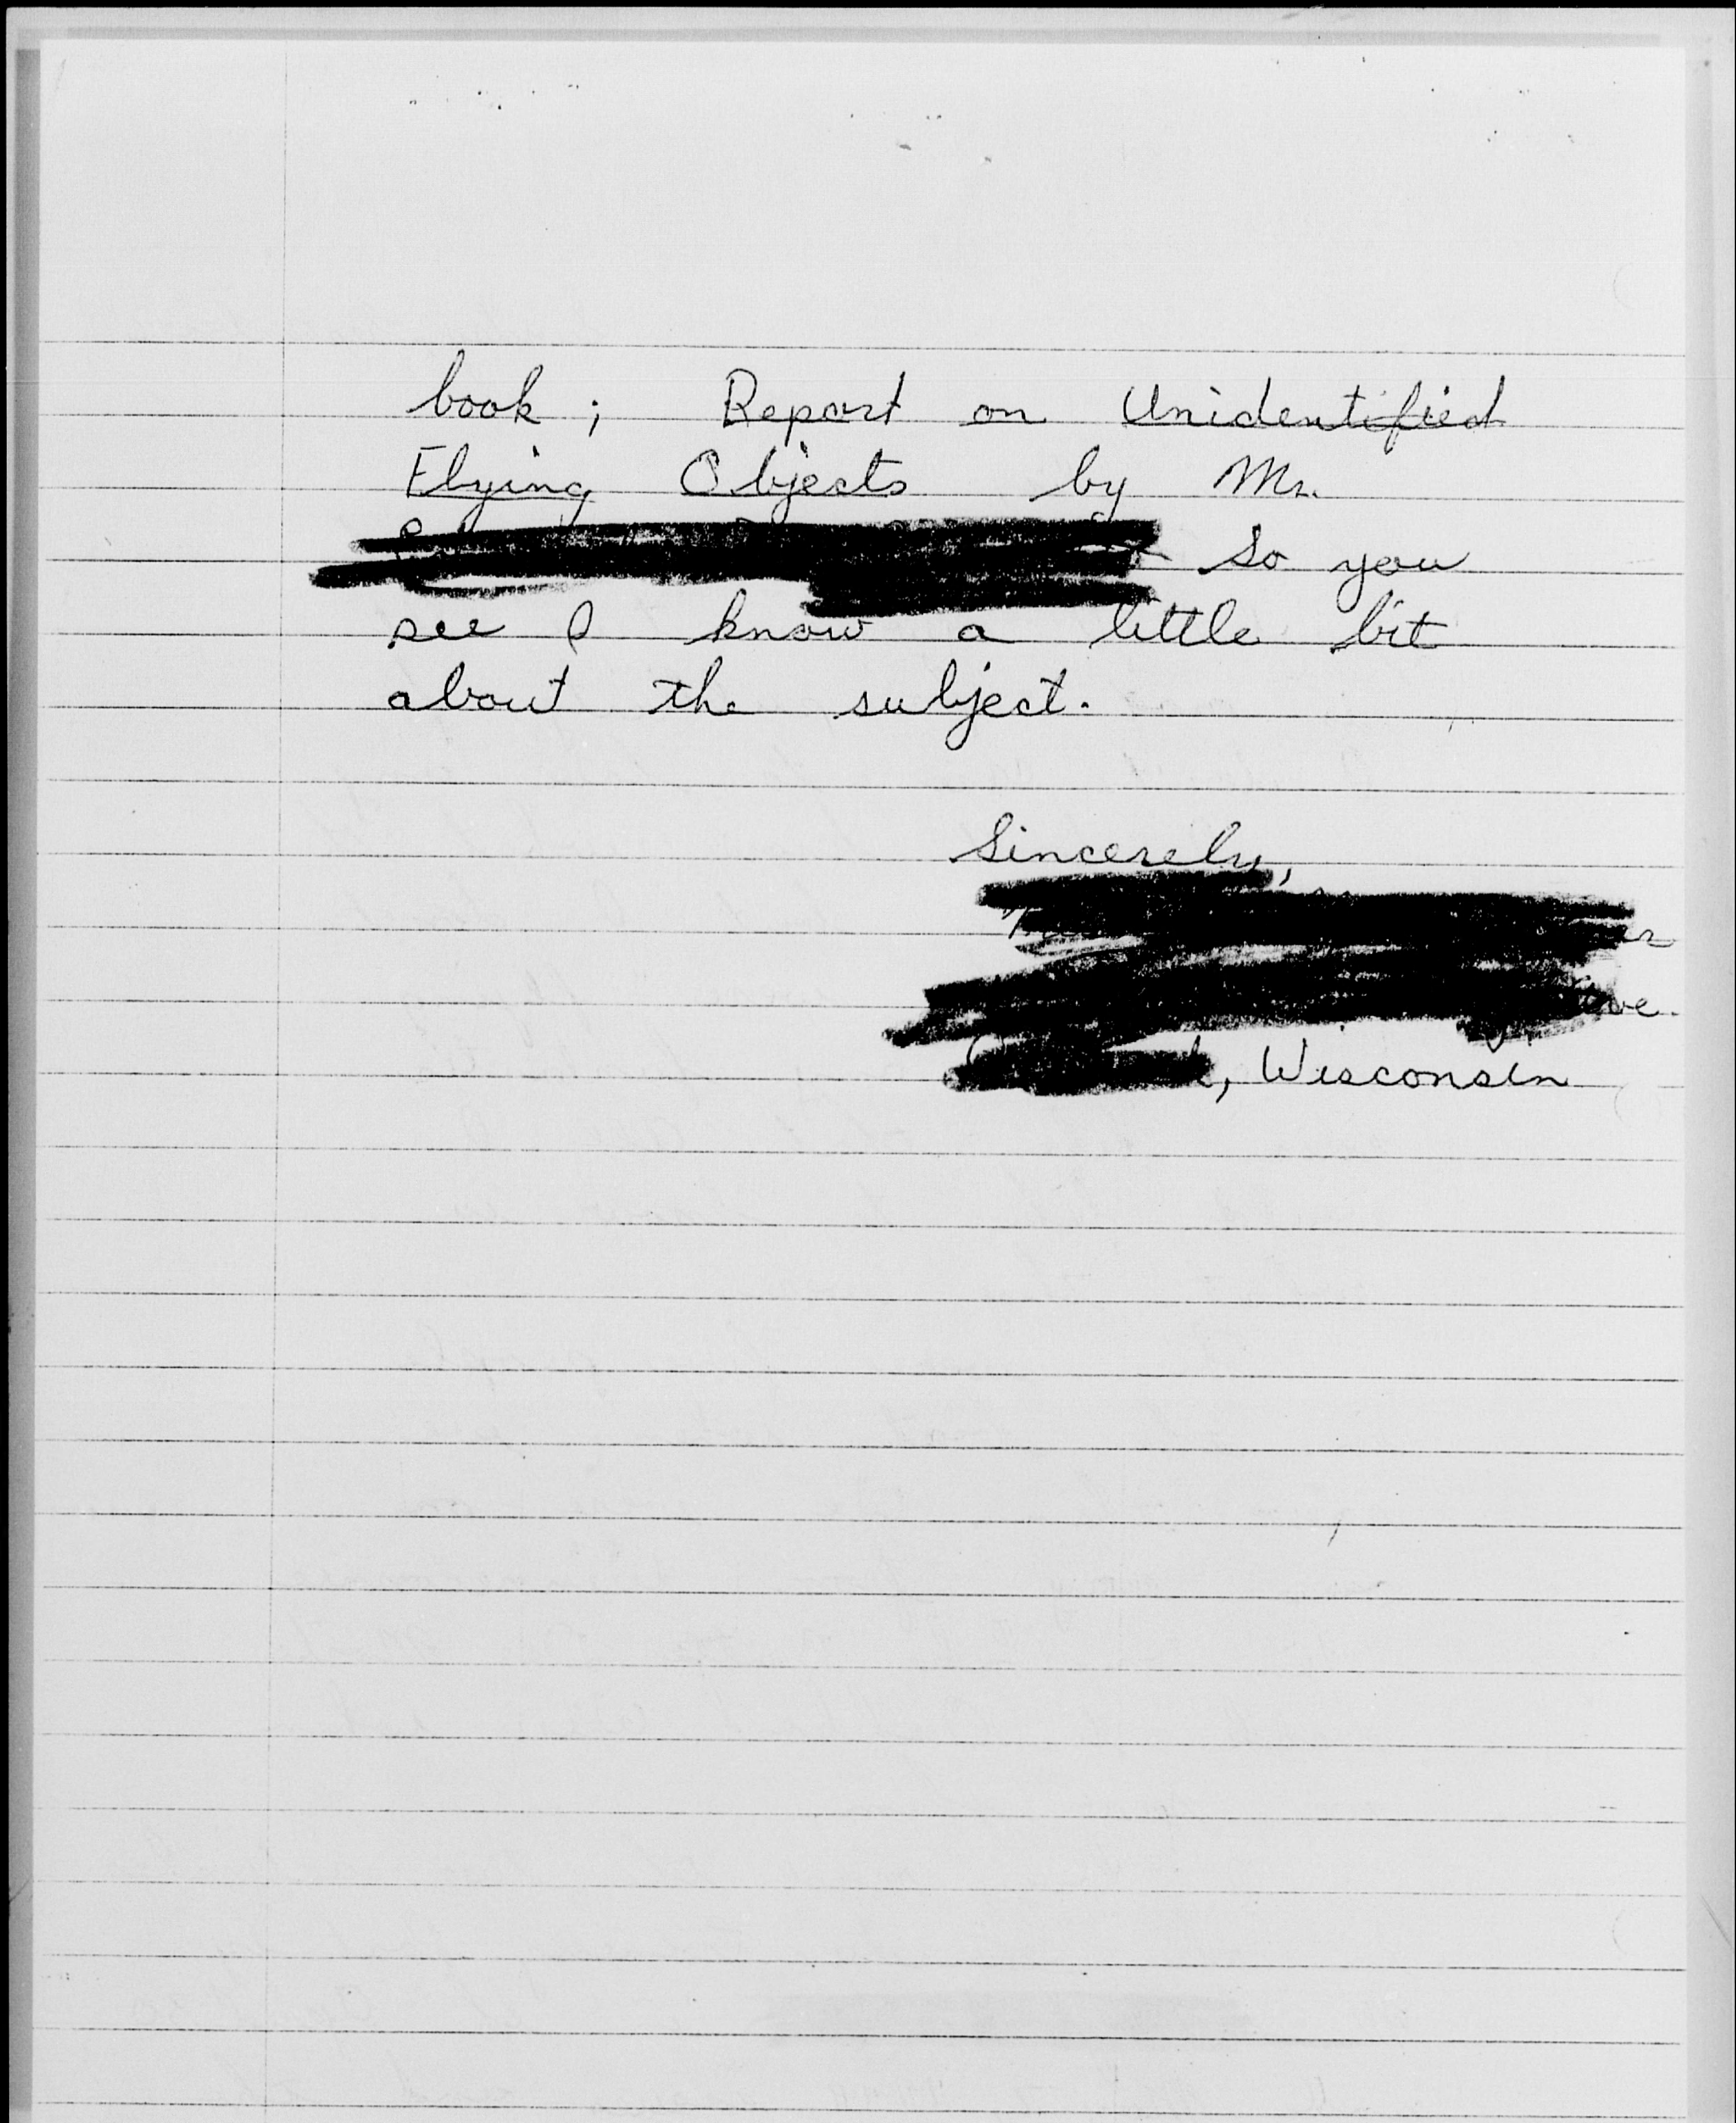 book; Report on Unidentified
Flying Objects by Mr.
So you
see I know a little bit
about the subject.
Sincerely,
, Wisconsin